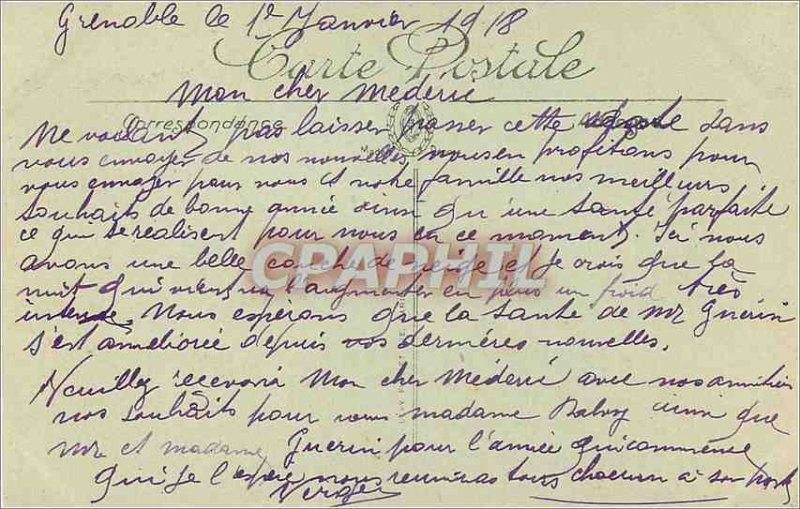 Grenoble le 1er Janvier 1918
Carte Postale
Mon cher Mederic
Correspondance
Ne voulant pas laisser passer cette date sans
vous envoyer de nos nouvelles, nous en profitons pour
vous envoyer pour vous et votre famille nos meilleurs
souhaits de bonne année ainsi qu'une santé parfaite
ce qui se réalisent pour nous en ce moment. Ici nous
avons une belle couche de neige et je crois que la
nuit qui vient va l'augmenter en plus un froid très
intense. Nous espérons que la santé de Mr Guerin
s'est améliorée depuis vos dernières nouvelles.
Veuillez recevoir Mon cher Mederic avec nos amitiés
nos souhaits pour vous madame ainsi que
Mr et madame Guerin pour l'année qui commence
qui je l'espère nous réunira tous chacun à son
Verger
CPAPHIL